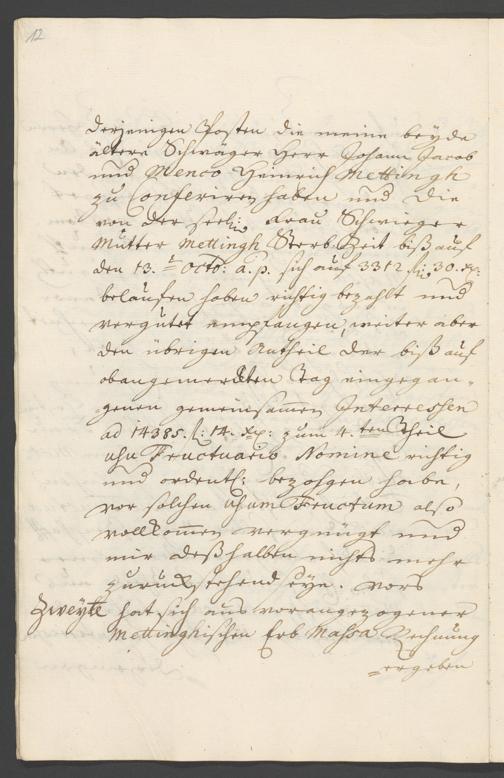 12
derjenigen Posten die meine beyde
ältere Schwäger Herr Johann Jacob
und Menco Heinrich Mettingh
zu Conferiren haben und die
von der seel: Frau Schwieger
Mutter Mettingh Sterb Zeit biß auf
den 13. Octo: a. p. sich auf 3312 f: 30. xr:
belaufen haben richtig bezahlt und
vergütet empfangen, weiter aber
den übrigen Antheil der biß auf
obangemerckten Tag eingegan-
genen gemeinsamen Interessen
ad 14385. f: 14. xr: zum 4.ten Theil
usu Fructuario Nomine richtig
und ordentl: bezohgen habe,
vor solchen usum Fructum also
vollkommen vergnügt und
mir deßhalben nichts mehr
zurückstehend seye. vors
Zweyte hat sich aus vorangezogener
Mettinghischen Erb Massa Rechnung
ergeben